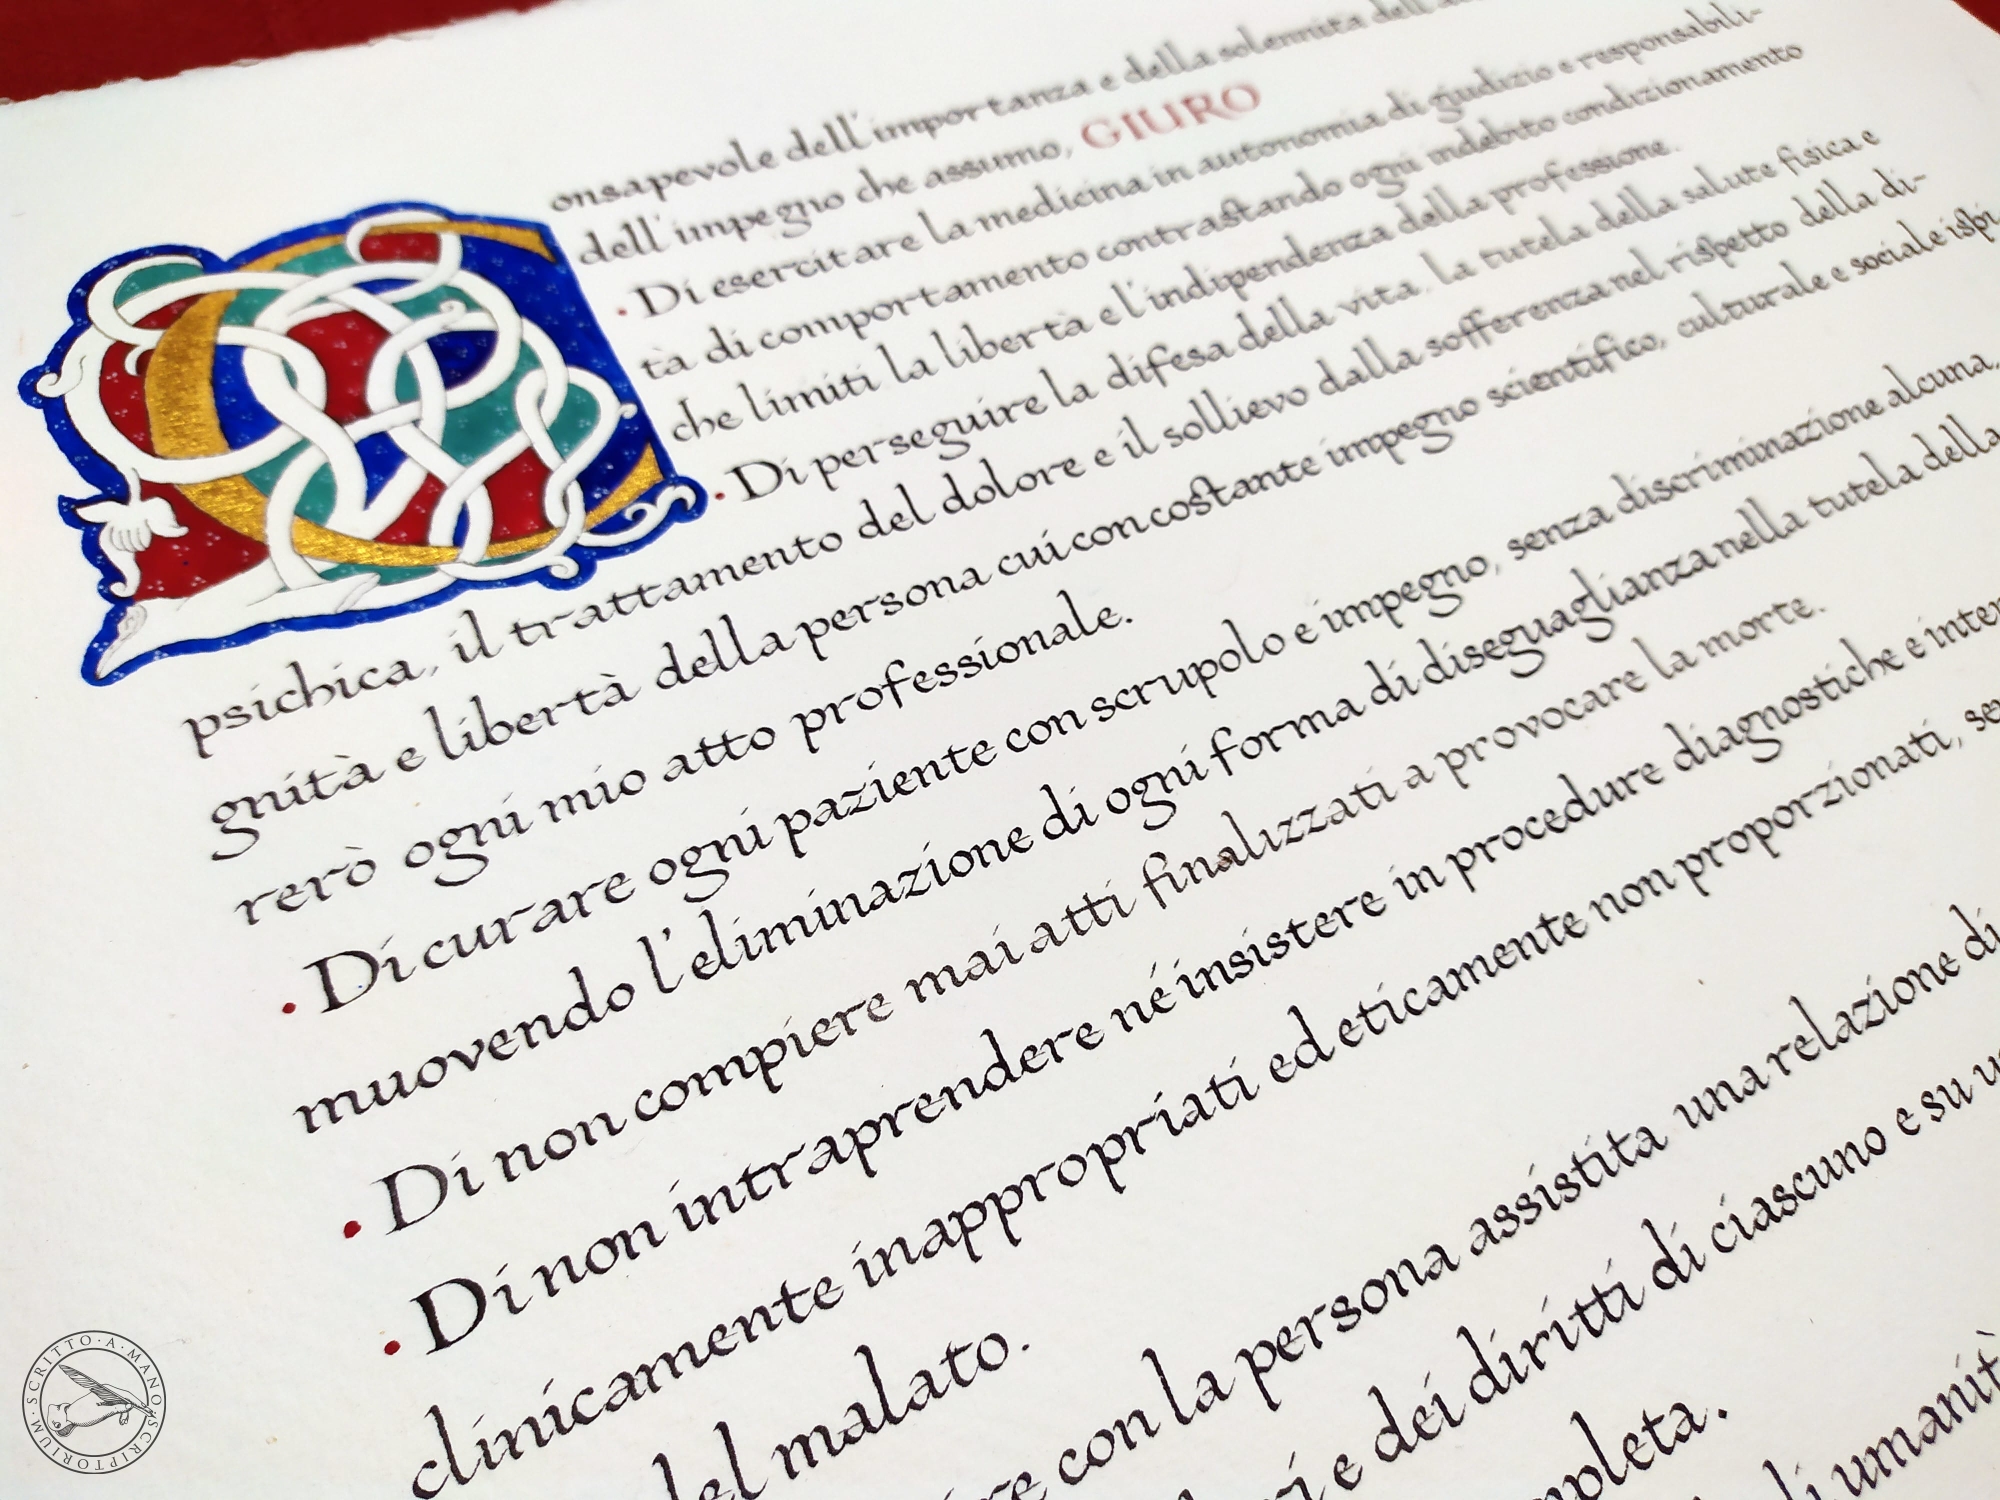 onsapevole dell'importanza e della solennità dell'
dell'impegno che assumo, GIURO
· Di esercitare la medicina in autonomia di giudizio e responsabili-
tà di comportamento contrastando ogni indebito condizionamento
che limiti la libertà e l'indipendenza della professione.
· Di perseguire la difesa della vita, la tutela della salute fisica e
psichica, il trattamento del dolore e il sollievo dalla sofferenza nel rispetto della di-
gnità e libertà della persona cui con costante impegno scientifico, culturale e sociale ispi
rerò ogni mio atto professionale.
· Di curare ogni paziente con scrupolo e impegno, senza discriminazione alcuna,
muovendo l'eliminazione di ogni forma di diseguaglianza nella tutela della
· Di non compiere mai atti finalizzati a provocare la morte.
· Di non intraprendere né insistere in procedure diagnostiche e inter
clinicamente inappropriati ed eticamente non proporzionati, se
del malato.
re con la persona assistita una relazione di
ri e dei diritti di ciascuno e su u
mpleta.
di umanit
SCRITTO·A·MANO·SCRIPTORIUM·